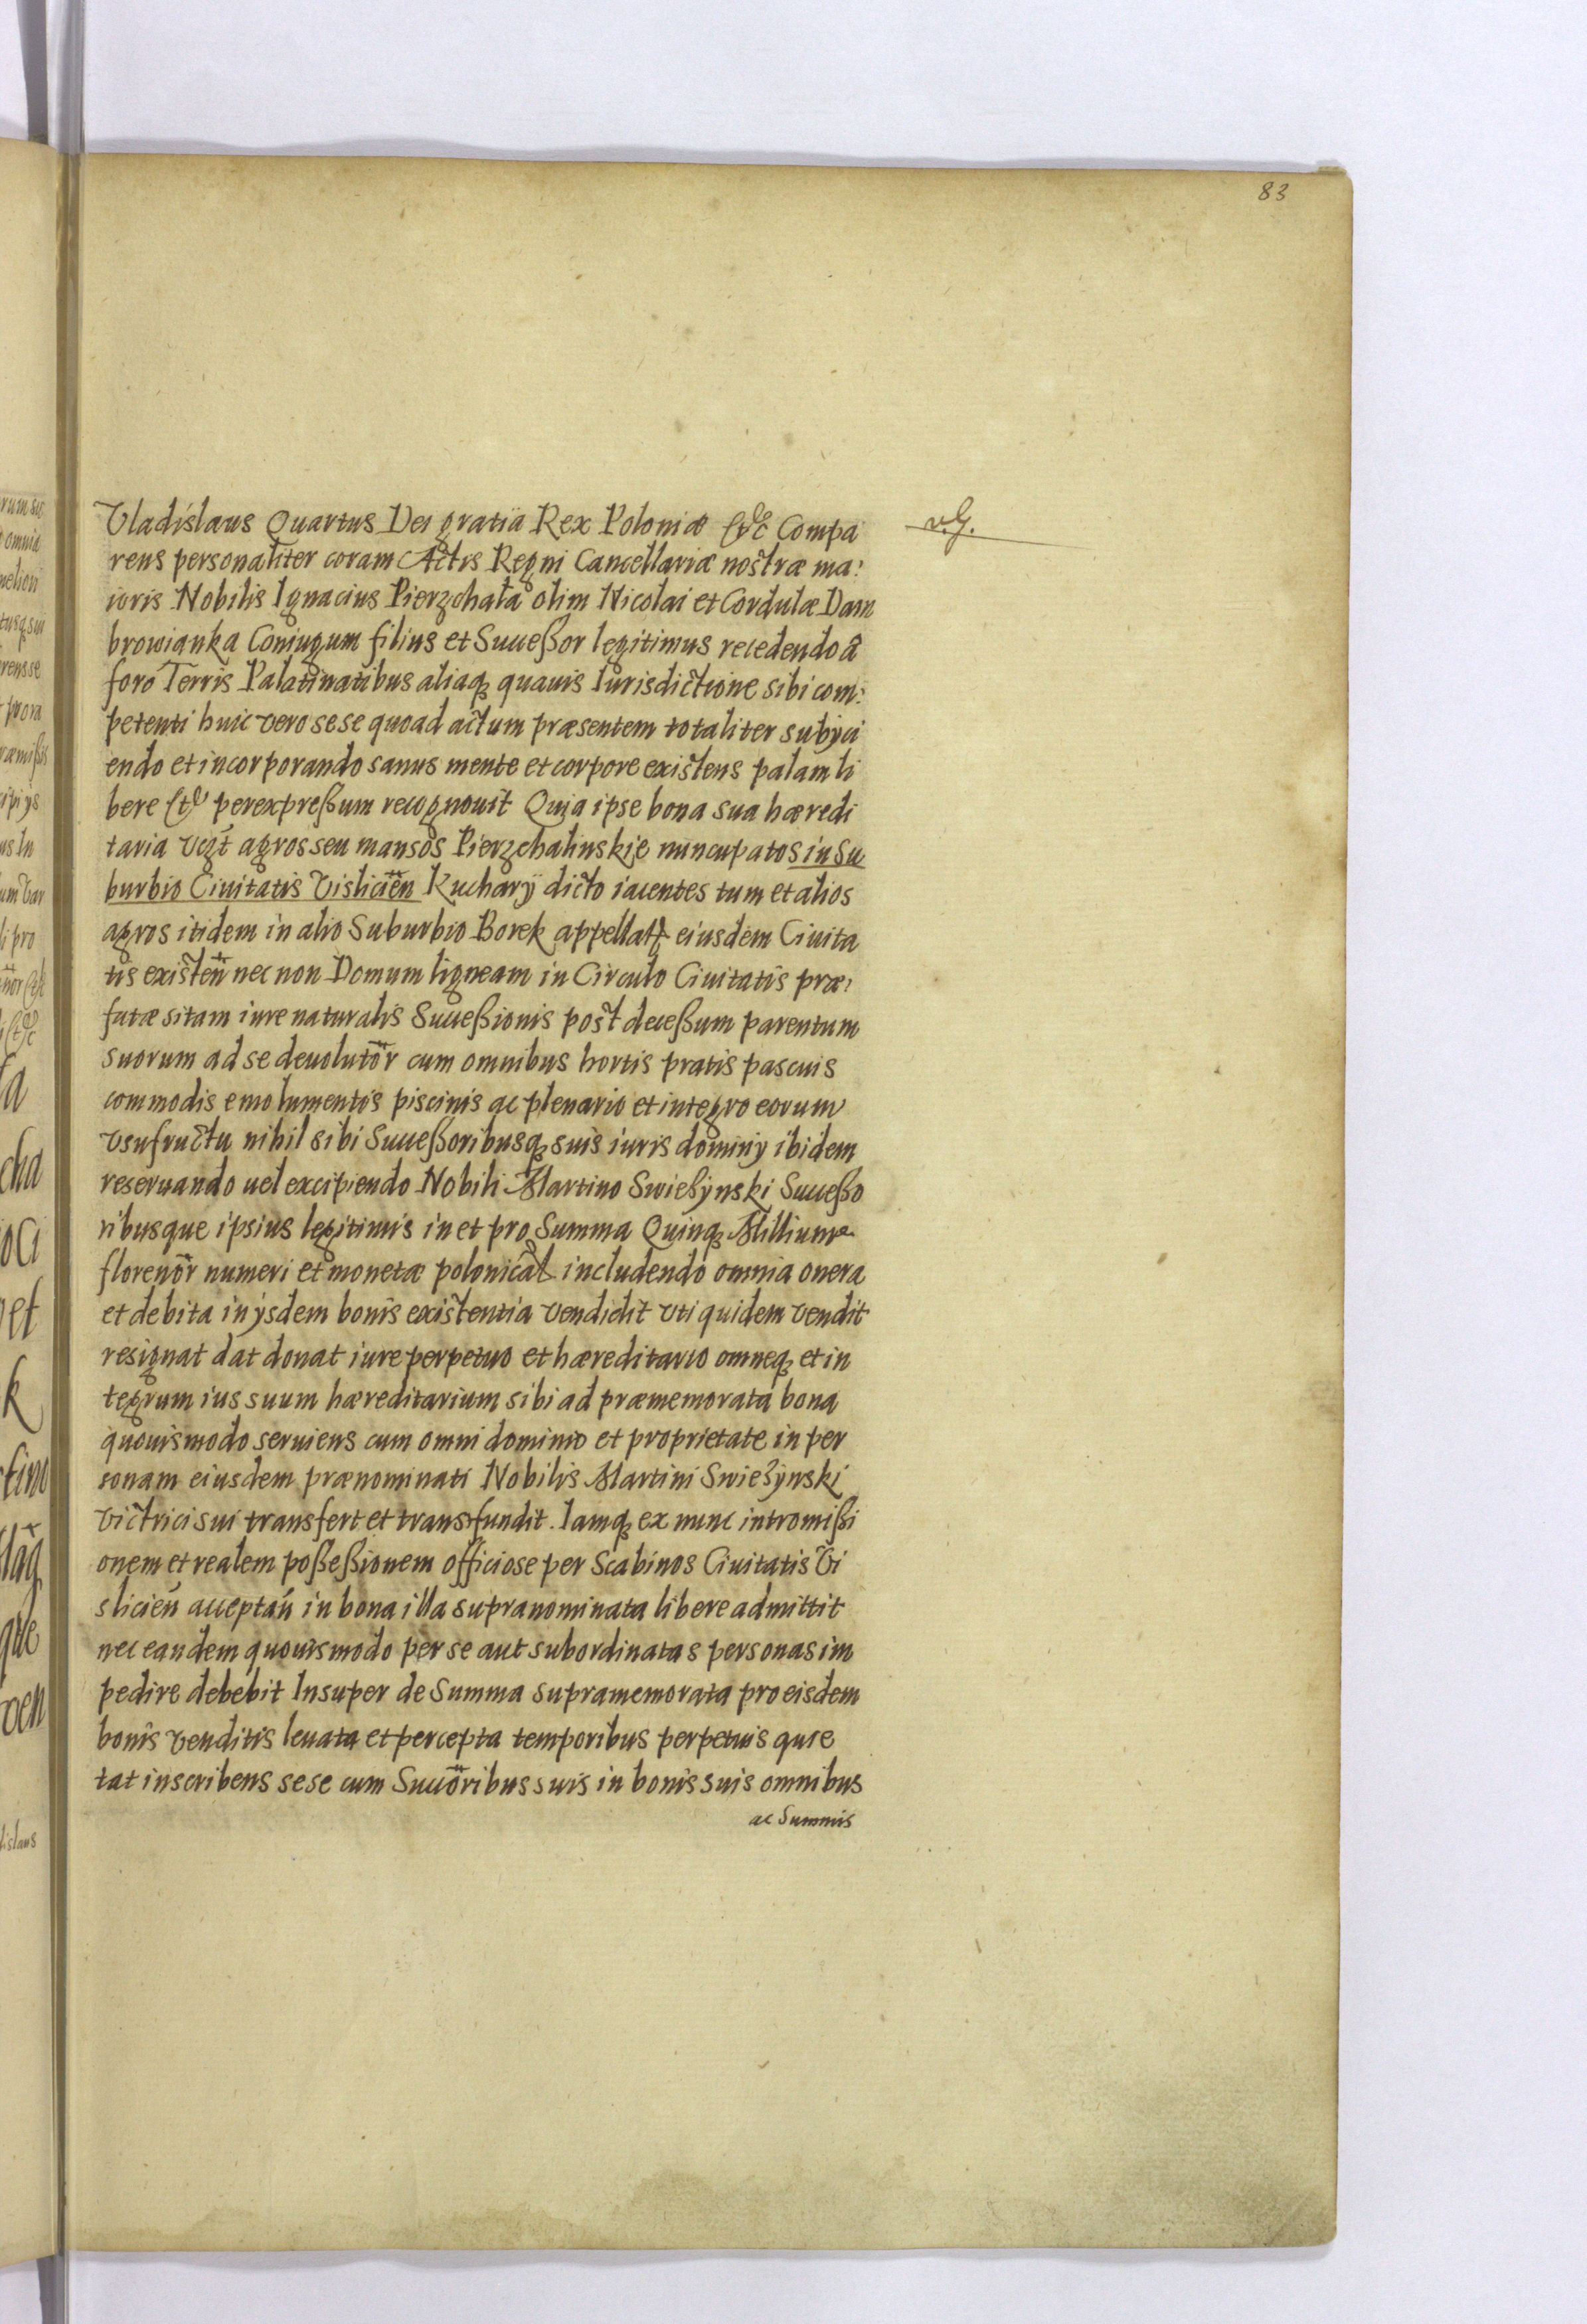 83
Vladislaus Quartus Dei gratia Rex Poloniæ etc Compa
v.G.
rens personaliter coram Actis Regni Cancellariæ nostræ ma:
ioris Nobilis Ignacius Pierzchała olim Nicolai et Cordulæ Dam
browianka Coniugum filius et Successor legitimus recedendo â
foro Terris Palatinatibus aliaq quauis Iurisdictione sibi com:
petenti huic vero sese quoad actum præsentem totaliter subijci
endo et incorporando sanus mente et corpore existens palam li
bere etc perexpressum recognouit Quia ipse bona sua hæredi
taria vigt agros seu mansos Pierzchalinskie nuncupatos in Su
burbio Ciuitatis Visliciēn Kucharÿ dicto iacentes tum et alios
agros itidem in alio Suburbio Borek appellat eiusdem Ciuita
tis existen̄ nec non Domum ligneam in Circulo Ciuitatis præ:
fatæ sitam iure naturalis Successionis post decessum parentum
suorum ad se deuolutōr cum omnibus hortis pratis pascuis
commodis emolumentis piscinis ac plenario et integro eorum
vsufructu nihil sibi Successoribusq suis iuris dominij ibidem
reseruando uel excipiendo Nobili Martino Swieżynski Successo
ribusque ipsius legitimis in et pro Summa Quinq Millium
florenōr numeri et monetæ polonical includendo omnia onera
et debita in ijsdem bonis existentia vendidit vti quidem vendit
resignat dat donat iure perpetuo et hæreditario omneq et in
tegrum ius suum hæreditarium sibi ad præmemorata bona
quouismodo seruiens cum omni dominio et proprietate in per
sonam eiusdem prænominati Nobilis Martini Swieżynski
victrici sui transfert et transfundit. Iamq ex nunc intromissi
onem et realem possessionem officiose per Scabinos Ciuitatis Vi
slicień acceptań in bona illa supranominata libere admittit
nec eandem quouismodo per se aut subordinatas personas im
pedire debebit Insuper de Summa supramemorata pro eisdem
bonis venditis leuata et percepta temporibus perpetuis quie
tat inscribens sese cum Succōribus suis in bonis suis omnibus
ac Summis